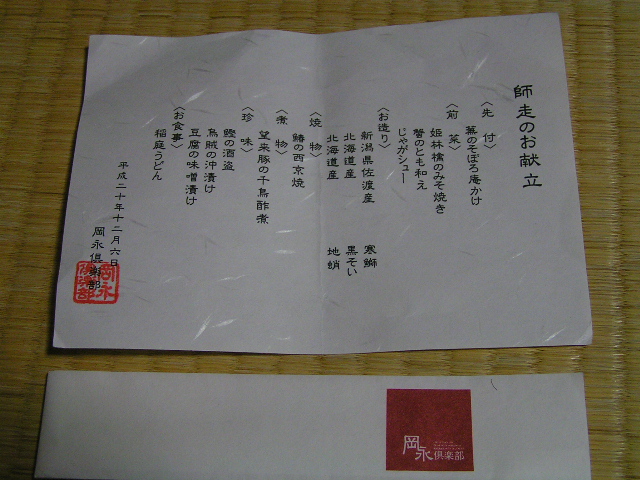 師走のお献立
〈先 付〉
蕪のそぼろ庵かけ
〈前 菜〉
姫林檎のみそ焼き
蟹のとも和え
じゃがシュー
〈お造り〉
新潟県佐渡産 寒鰤
北海道産 黒そい
北海道産 地蛸
〈焼 物〉
鰆の西京焼
〈煮 物〉
望来豚の千鳥酢煮
〈珍 味〉
鰹の酒盗
烏賊の沖漬け
豆腐の味噌漬け
〈お食事〉
稲庭うどん
平成二十年十二月六日
岡永倶楽部
岡永
倶楽部
岡永倶楽部